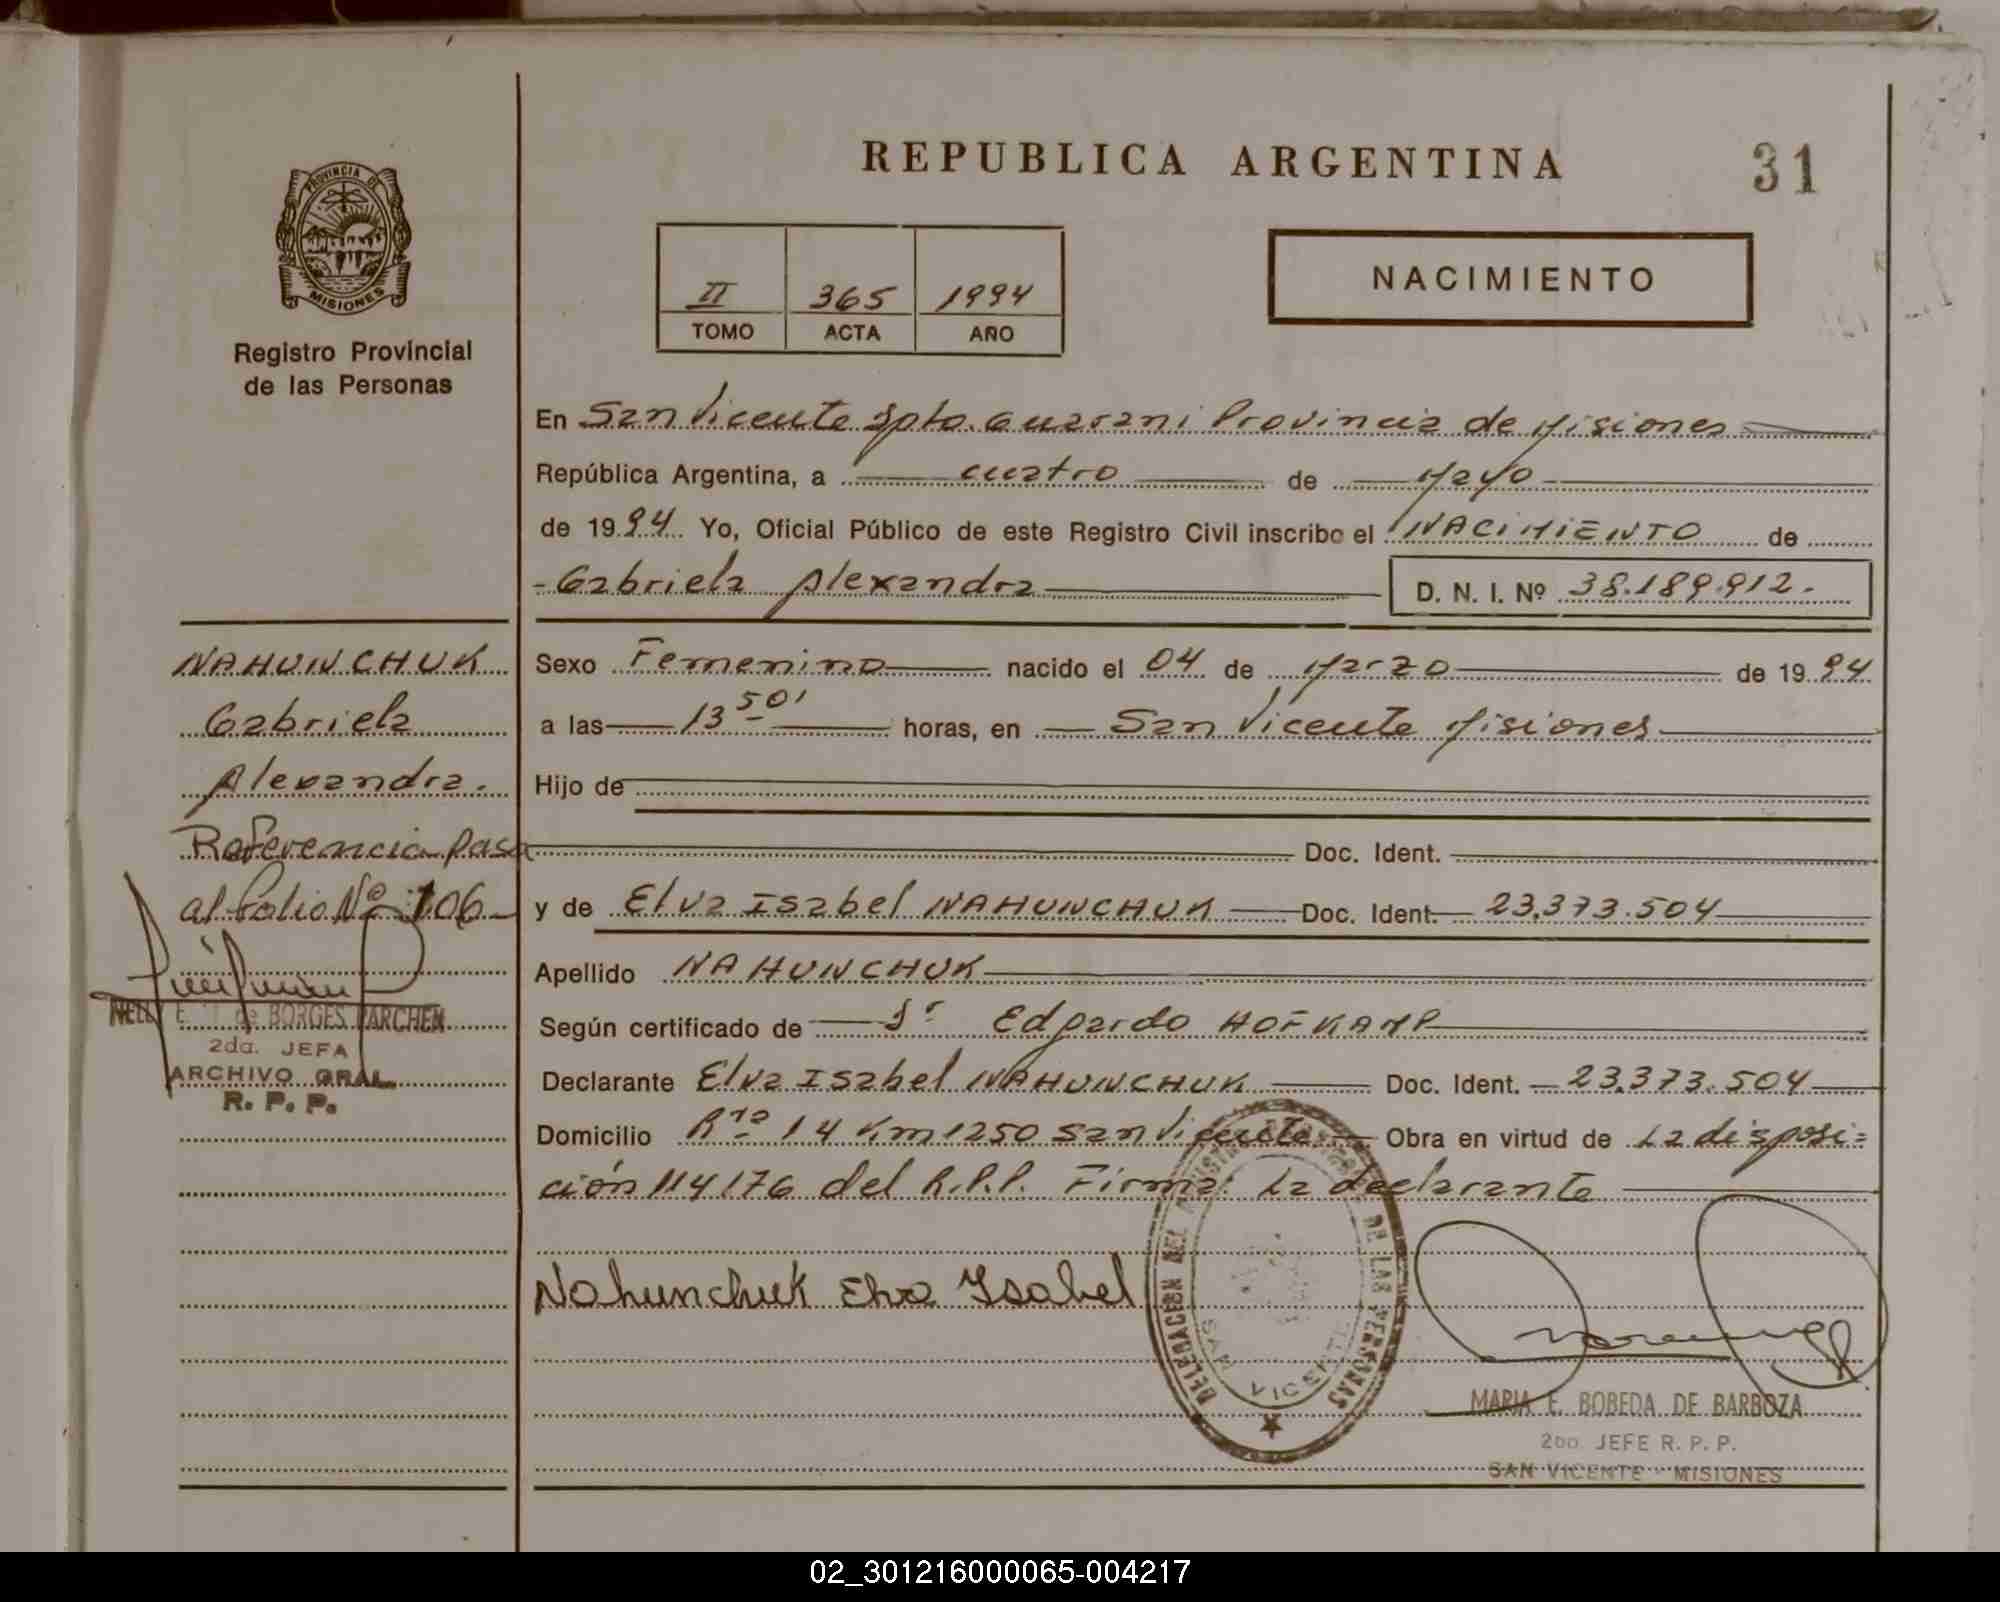 REPUBLICA ARGENTINA
31
PROVINCIA DE
MISIONES
Registro Provincial
de las Personas
II 365 1994
TOMO ACTA AÑO
NACIMIENTO
En San Vicente Dpto. Guarani Provincia de Misiones
República Argentina, a cuatro de Mayo
de 19 94 Yo, Oficial Público de este Registro Civil inscribo el NACIMIENTO de
Gabriela Alexandra D. N. I. Nº 38.189.912.-
NAHUNCHUK
Gabriela
Alexandra.
Referencia pasa
al folio Nº 106
NELLY E. de BORGES PARCHEM
2da. JEFA
ARCHIVO GRAL.
R. P. P.
Sexo Femenino nacido el 04 de Marzo de 19 94
a las 13 50' horas, en San Vicente Misiones
Hijo de
Doc. Ident.
y de Elva Isabel NAHUNCHUK Doc. Ident. 23.373.504
Apellido NAHUNCHUK
Según certificado de Dr Edgardo HOFKAMP
Declarante Elva Isabel NAHUNCHUK Doc. Ident. 23.373.504
Domicilio Rta 14 Km 1250 San Vicente Obra en virtud de La disposi=
ción 114/76 del R.P.P. Firma: La declarante
Nahunchuk Elva Isabel
DELEGACION DEL REGISTRO PROVINCIAL DE LAS PERSONAS
SAN VICENTE
MARIA E. BOBEDA DE BARBOZA
2do. JEFE R. P. P.
SAN VICENTE - MISIONES
02_301216000065-004217